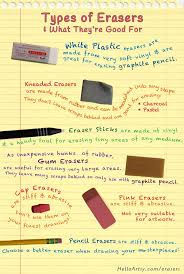 Types of Erasers
& What They're Good For
White Plastic erasers are
made from very soft vinyl & are
great for erasing graphite pencil.
Kneaded Erasers
are made very rubber and can be
They don't leave scraps behind and
Use any shape
• Charcoal
• Pastel
Eraser Sticks are made of vinyl
& a handy tool for erasing tiny areas of any size.
As inexpensive hunks of rubber,
Gum Erasers
are useful for erasing very large areas.
They leave scraps behind but only use with graphite pencil.
Cap Erasers
are stiff & abrasive.
Don't use them on your finest drawing!
Pink Erasers
are stiff & abrasive.
Not very suitable for artwork.
Pencil Erasers are stiff & abrasive.
Choose a better eraser when drawing your masterpieces!
HelloArtsy.com/erasers